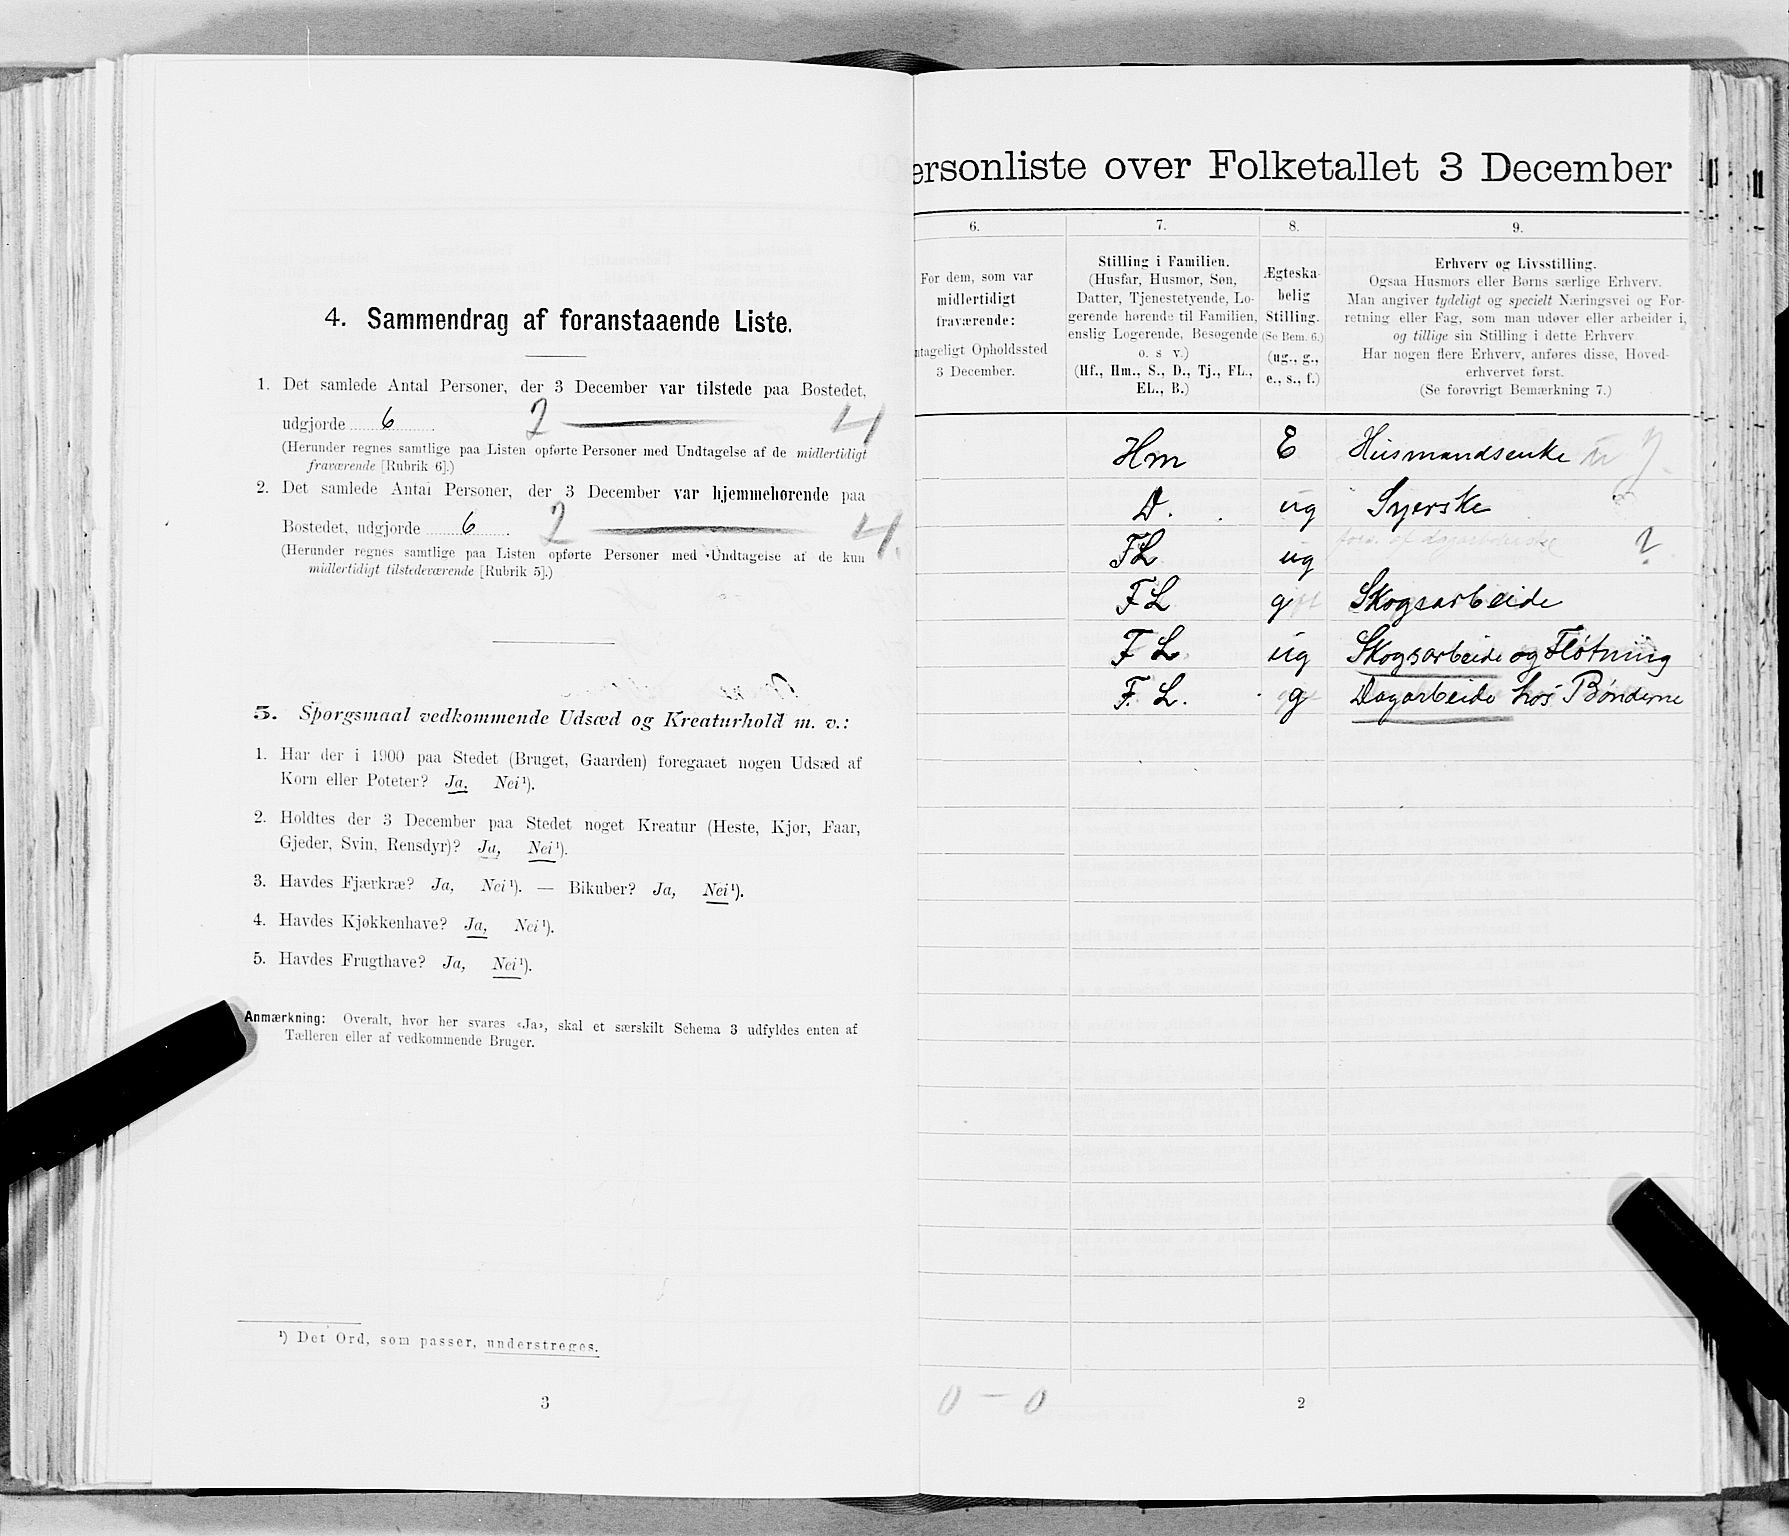 4. Sammendrag af foranstaaende Liste.
1. Det samlede Antal Personer, der 3 December var tilstede paa Bostedet,
udgjorde 6 2 4
(Herunder regnes samtlige paa Listen opførte Personer med Undtagelse af de midlertidigt
fraværende [Rubrik 6].)
2. Det samlede Antal Personer, der 3 December var hjemmehørende paa
Bostedet, udgjorde 6. 2 4.
(Herunder regnes samtlige paa Listen opførte Personer med Undtagelse af de kun
midlertidigt tilstedeværende [Rubrik 5].)
5. Spørgsmaal vedkommende Udsæd og Kreaturhold m. v.:
1. Har der i 1900 paa Stedet (Bruget, Gaarden) foregaaet nogen Udsæd af
Korn eller Poteter? Ja, Nei¹).
2. Holdtes der 3 December paa Stedet noget Kreatur (Heste, Kjør, Faar,
Gjeder, Svin, Rensdyr)? Ja, Nei¹).
3. Havdes Fjærkræ? Ja, Nei¹). — Bikuber? Ja, Nei¹).
4. Havdes Kjøkkenhave? Ja, Nei¹).
5. Havdes Frugthave? Ja, Nei¹).
Anmærkning: Overalt, hvor her svares «Ja», skal et særskilt Schema 3 udfyldes enten af
Tælleren eller af vedkommende Bruger.
¹) Det Ord, som passer, understreges.
3
2-4 0
ersonliste over Folketallet 3 December
6.
For dem, som var
midlertidigt
fraværende:
ntageligt Opholdssted
3 December.
7.
Stilling i Familien.
(Husfar, Husmor, Søn,
Datter, Tjenestetyende, Lo-
gerende hørende til Familien,
enslig Logerende, Besøgende
o. s v.)
(Hf., Hm., S., D., Tj., FL.,
EL., B.)
8.
Ægteska-
belig
Stilling.
(Se Bem. 6.)
(ug., g.,
e., s., f.)
9.
Erhverv og Livsstilling.
Ogsaa Husmors eller Børns særlige Erhverv.
Man angiver tydeligt og specielt Næringsvei og For-
retning eller Fag, som man udøver eller arbeider i,
og tillige sin Stilling i dette Erhverv
Har nogen flere Erhverv, anføres disse, Hoved-
erhvervet først.
(Se forøvrigt Bemærkning 7.)
Hm E Husmandsenke
D. ug Syerske
FL ug fors. af dagarbeiderske ?
FL g Skogsarbeide
FL ug Skogsarbeide og Fløtning
F. L. g Dagarbeide hos Bønderne
0 - 0
2